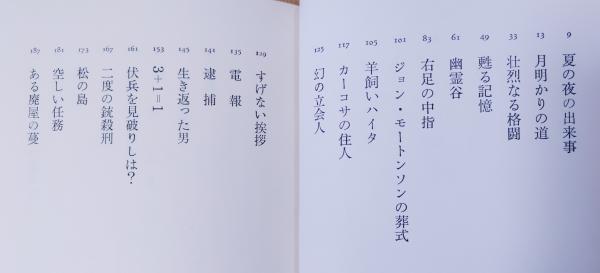 9 夏の夜の出来事
13 月明かりの道
33 壮烈なる格闘
49 甦る記憶
61 幽霊谷
83 右足の中指
101 ジョン・モートンソンの葬式
105 羊飼いハイタ
117 カーコサの住人
125 幻の立会人
129 すげない挨拶
135 電報
141 逮捕
145 生き返った男
153 3+1=1
161 伏兵を見破りしは?
167 二度の銃殺刑
173 松の島
181 空しい任務
187 ある廃屋の蔓